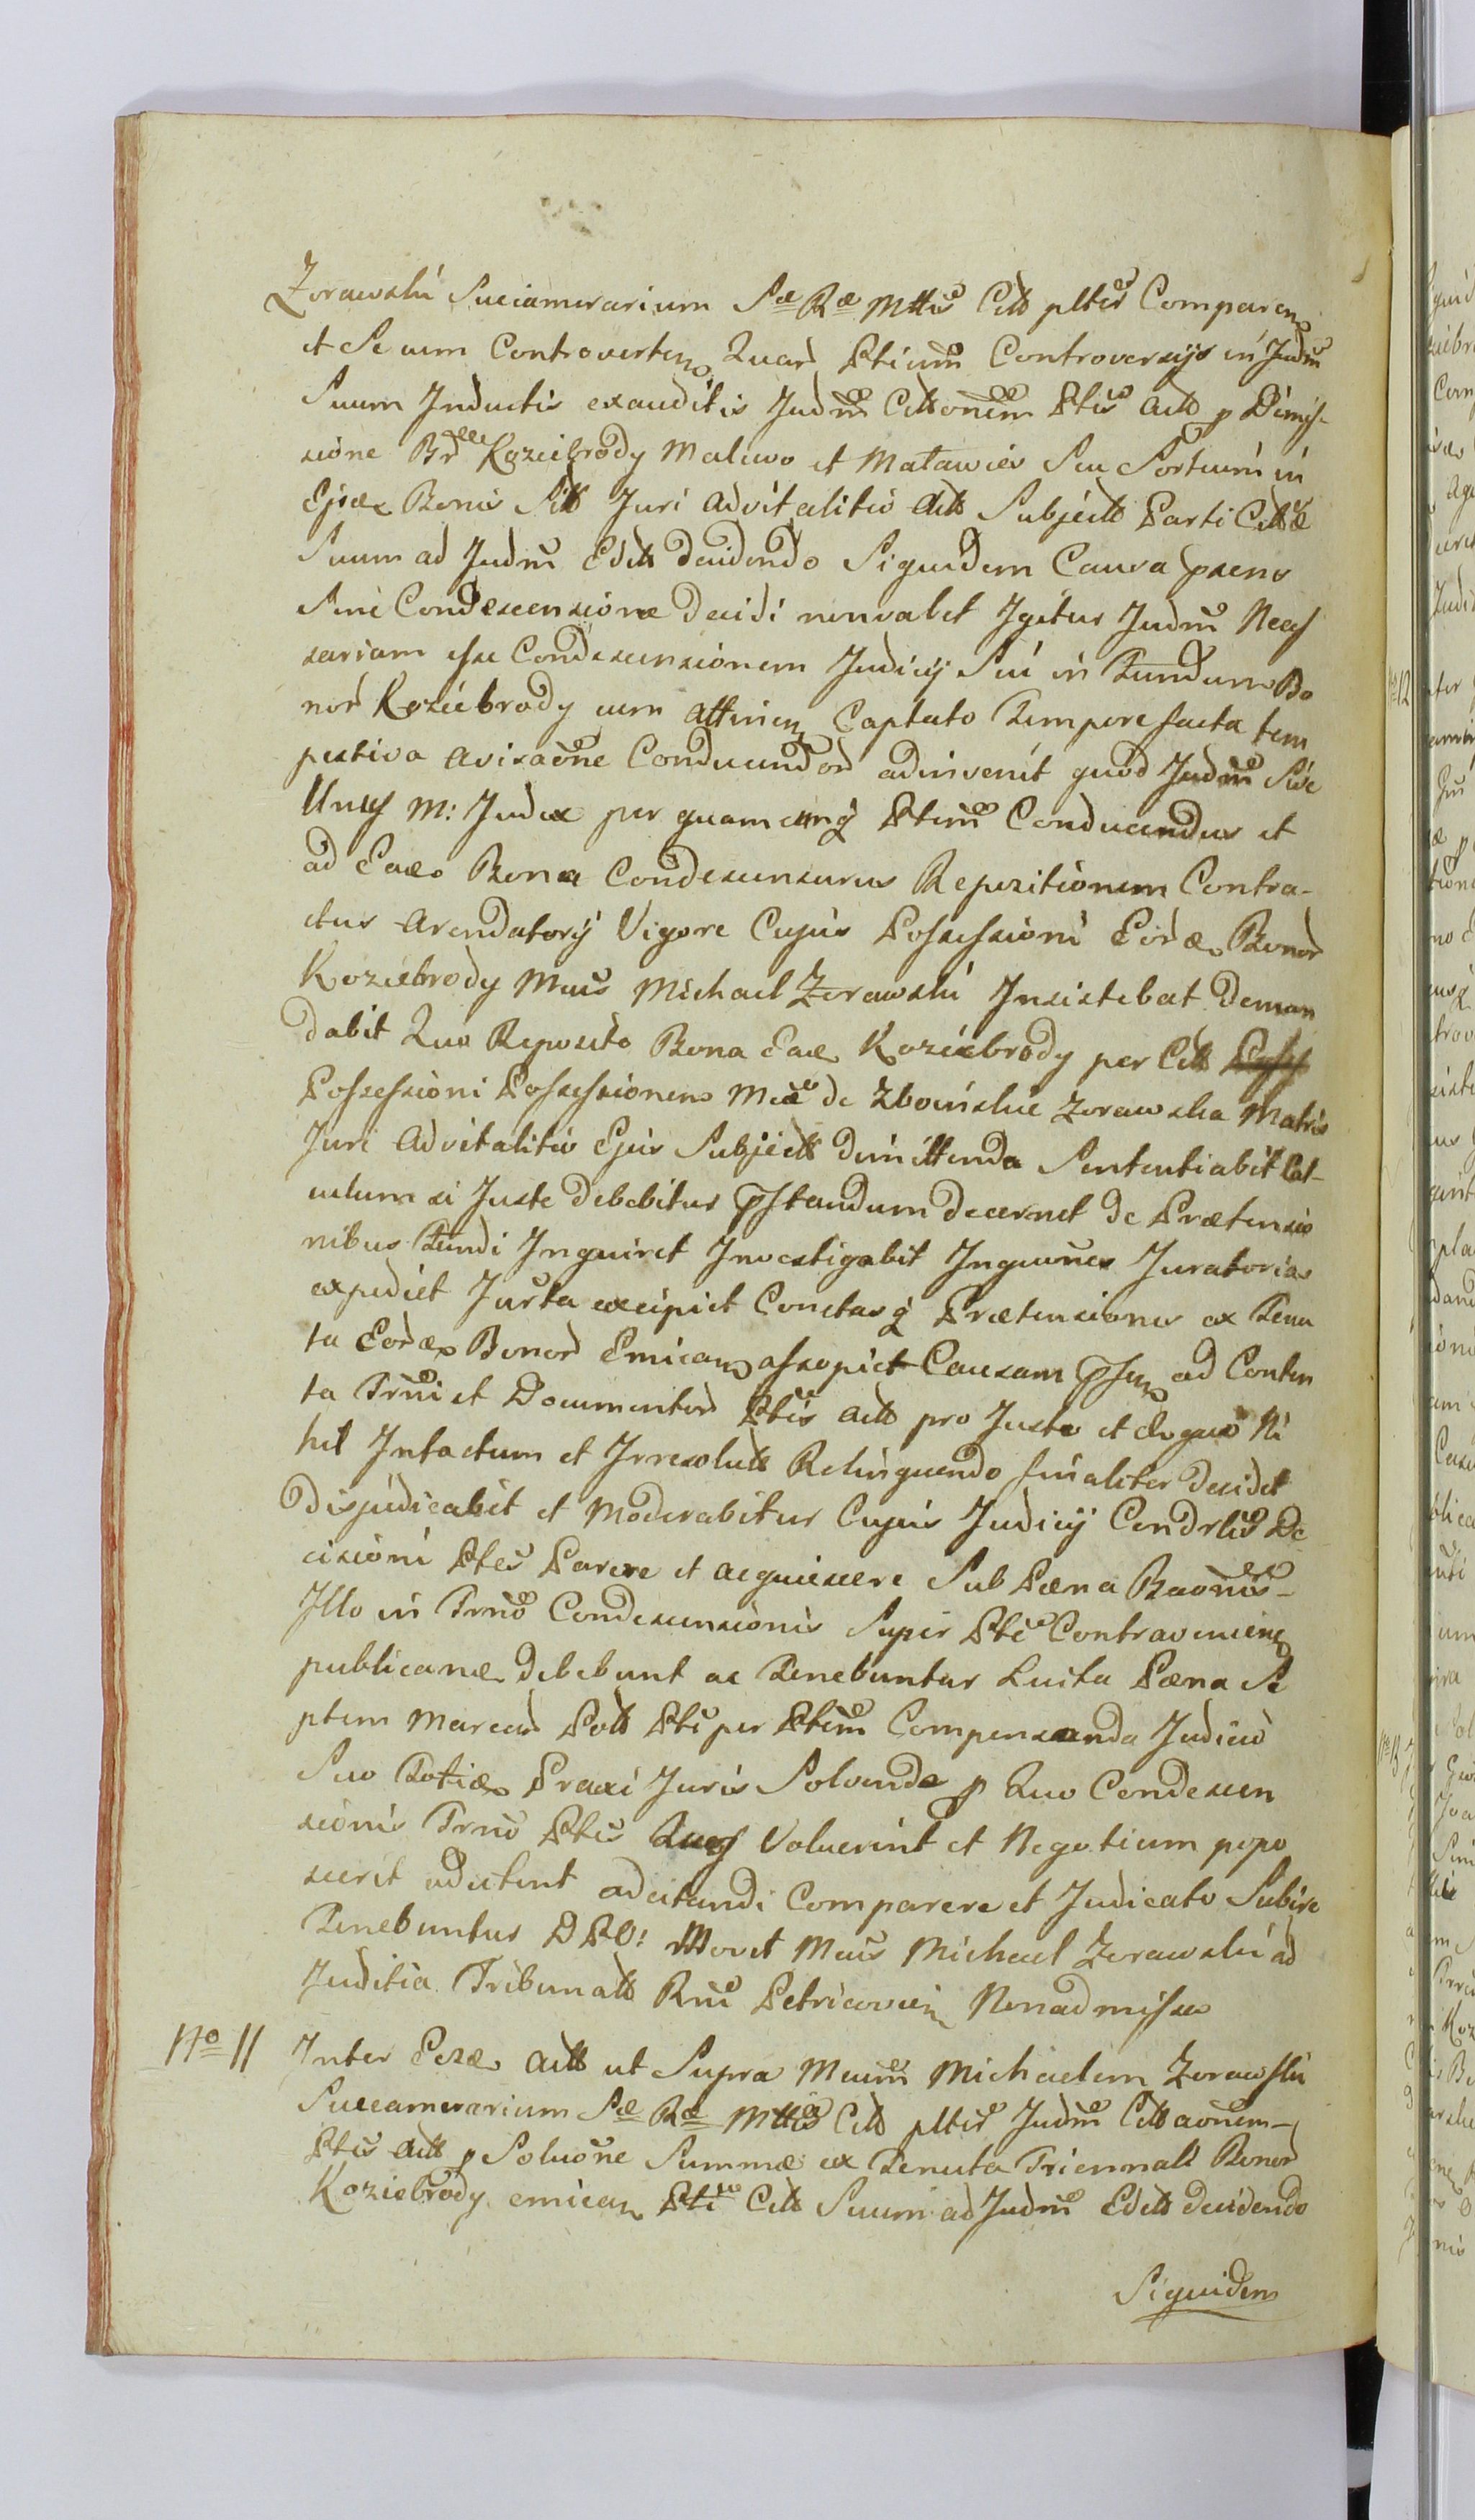 Zorawski Succamerarium Sæ Ræ Mttis Citt plter Comparen
et Se cum Controverten Quar Ptium Controversijs in Judm
Suum Inductis exauditis Judm Cittonem Ptis Actt p Dimis-
sione Br Koziebrody Malewo et Matawies Seu Sortium in
Ejsæ Bonis Sitt Juri advitalitio Actt Subjectt Parti Cittæ
Suum ad Judm Editt decidendo Siquidem Causa psens
Sine Condescensione decidi non valet Igitur Judm Neces
sariam esse Condescensionem Judicij Sui in Fundum Bo
nor Koziebrody cum attinen Captato Tempore facta tem
pestiva avisaone Conducendor adinvenit quod Judm Sive
Unus M: Judex per quamcunq Ptem Conducendus et
ad Eaæ Bona Condescensurus Repositionem Contra-
ctus Arendatorij Vigore Cujus Possessioni Eoræ Bonor
Koziebrody Mcus Michael Zorawski Insistebat Deman
dabit Quo Reposito Bona Eaæ Koziebrody per Citt
Possessioni Possessionem Mcæ de Zboinskie Zorawska Matris
Juri Advitalitio Ejus Subjectt dimittenda Sententiabit Cal-
culum si Juste debebitur pstandum decernet de Prætensio
nibus Fundi Inquiret Investigabit Inquiones Juratorias
expediet Jurta excipiet Cunctasq Prætensiones ex Tenu
ta Eoræ Bonor Emican assopiet Causam psen ad Conten
ta Trni et Documentor Ptis Actt pro Juste et Æquo Ni
hil Intactum et Irresolutt Relinquendo finaliter decidet
disjudicabit et Moderabitur Cujus Judicij Condrlis De
cisioni Ptes Parere et acquiescere Sub Pæna Baonis-
Illo in Trno Condescensionis Super Pte Contravenien
publicanæ debebunt ac Tenebuntur Luita Pæna Se
ptem Marcar Pott Pti per Ptem Compensanda Judicio
Suo Totiæ Praxi Juris Solvenda p Quo Condescen
sionis Trno Ptes Ques Voluerint et Negotium popo
scerit adcitent adcitandi Comparere et Judicato Subire
Tenebuntur DPO: Movet Mcus Michael Zorawski ad
Juditia Tribunatt Rni Petricovien Non admisso
No 11 Inter Eesæ Actt ut Supra Mcum Michaelem Zorawski
Succamerarium Sæ Ræ Mttis Citt pltis Judm Cittaonem-
Ptis Actt p Soluone Summæ ex Tenuta Triennali Bonor
Koziebrody emican Pti Citt Suum ad Judm Editt decidendo
Siquidem